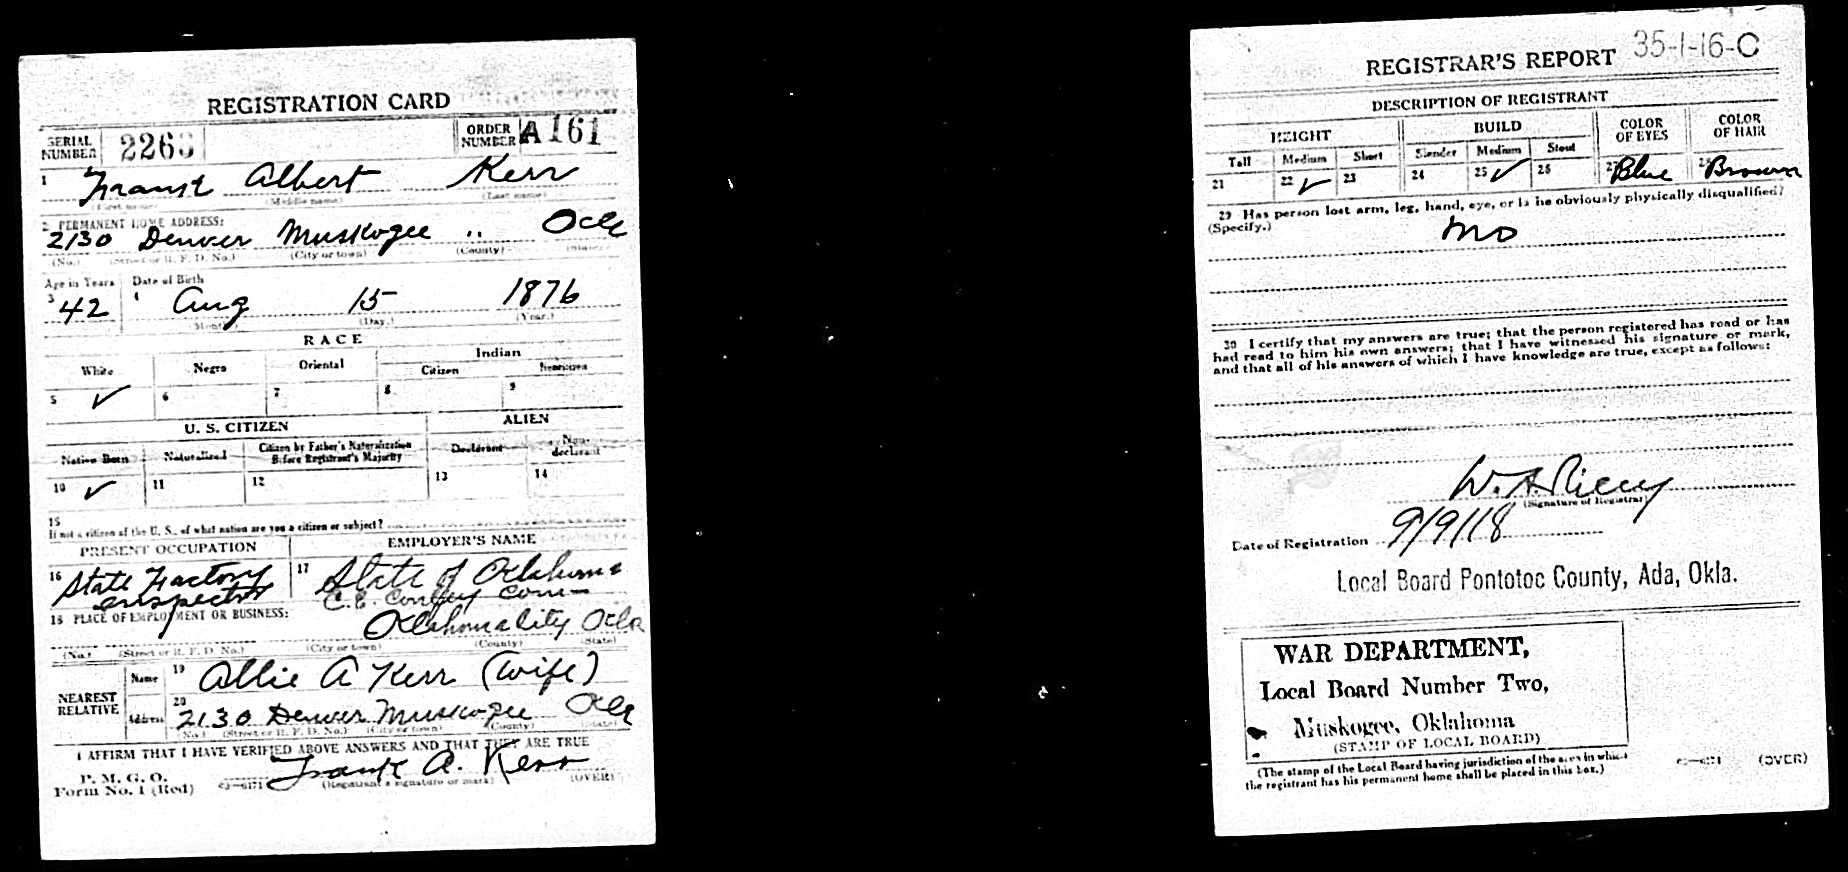 REGISTRATION CARD
SERIAL NUMBER 2263 ORDER NUMBER A 161
1 Frank Albert Kerr
(First name) (Middle name) (Last name)
2 PERMANENT HOME ADDRESS:
2130 Denver Muskogee .. Okla
(No.) (Street or R. F. D. No.) (City or town) (County) (State)
Age in Years Date of Birth
3 42 4 Aug 15 1876
(Month) (Day.) (Year.)
RACE
White Negro Oriental Indian
Citizen Noncitizen
5 ✓ 6 7 8 9
U. S. CITIZEN ALIEN
Native Born Naturalized Citizen by Father's Naturalization Before Registrant's Majority Declarant Non-declarant
10 ✓ 11 12 13 14
15
If not a citizen of the U. S., of what nation are you a citizen or subject?
PRESENT OCCUPATION EMPLOYER'S NAME
16 State Factory 17 State of Oklahoma
Inspector C.E. Com—
18 PLACE OF EMPLOYMENT OR BUSINESS:
Oklahoma City Okla
(No.) (Street or R. F. D. No.) (City or town) (County) (State)
NEAREST RELATIVE
Name 19 Allie A Kerr (wife)
Address 20 2130 Denver Muskogee Okla
(No.) (Street or R. F. D. No.) (City or town) (County) (State)
I AFFIRM THAT I HAVE VERIFIED ABOVE ANSWERS AND THAT THEY ARE TRUE
P. M. G. O.
Form No. 1 (Red) 03—6171 Frank A. Kerr
(Registrant's signature or mark) (OVER)
35-1-16-C
REGISTRAR'S REPORT
DESCRIPTION OF REGISTRANT
HEIGHT BUILD COLOR OF EYES COLOR OF HAIR
Tall Medium Short Slender Medium Stout
21 22 ✓ 23 24 25 ✓ 26 27 Blue 28 Brown
29 Has person lost arm, leg, hand, eye, or is he obviously physically disqualified?
(Specify.)
no
30 I certify that my answers are true; that the person registered has read or has
had read to him his own answers; that I have witnessed his signature or mark,
and that all of his answers of which I have knowledge are true, except as follows:
W. A.
(Signature of Registrar)
Date of Registration 9/9/18
Local Board Pontotoc County, Ada, Okla.
WAR DEPARTMENT,
Local Board Number Two,
Muskogee, Oklahoma
(STAMP OF LOCAL BOARD)
(The stamp of the Local Board having jurisdiction of the area in which
the registrant has his permanent home shall be placed in this box.)
03—6171 (OVER)